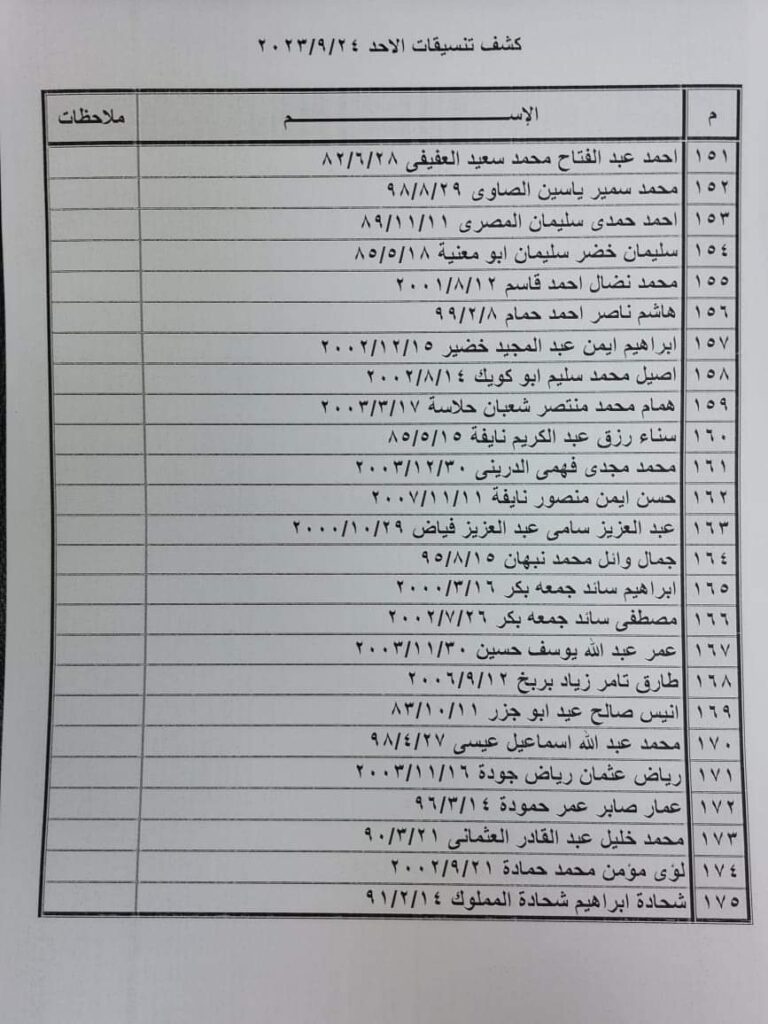 كشف تنسيقات الاحد ٢٠٢٣/٩/٢٤
م الإســـــــم ملاحظات
١٥١ احمد عبد الفتاح محمد سعيد العفيفى ٨٢/٦/٢٨
١٥٢ محمد سمير ياسين الصاوى ٩٨/٨/٢٩
١٥٣ احمد حمدى سليمان المصرى ٨٩/١١/١١
١٥٤ سليمان خضر سليمان ابو معنية ٨٥/٥/١٨
١٥٥ محمد نضال احمد قاسم ٢٠٠١/٨/١٢
١٥٦ هاشم ناصر احمد حمام ٩٩/٢/٨
١٥٧ ابراهيم ايمن عبد المجيد خضير ٢٠٠٢/١٢/١٥
١٥٨ اصيل محمد سليم ابو كويك ٢٠٠٢/٨/١٤
١٥٩ همام محمد منتصر شعبان حلاسة ٢٠٠٣/٣/١٧
١٦٠ سناء رزق عبد الكريم نايفة ٨٥/٥/١٥
١٦١ محمد مجدى فهمى الدرينى ٢٠٠٣/١٢/٣٠
١٦٢ حسن ايمن منصور نايفة ٢٠٠٧/١١/١١
١٦٣ عبد العزيز سامى عبد العزيز فياض ٢٠٠٠/١٠/٢٩
١٦٤ جمال وائل محمد نبهان ٩٥/٨/١٥
١٦٥ ابراهيم سائد جمعه بكر ٢٠٠٠/٣/١٦
١٦٦ مصطفى سائد جمعه بكر ٢٠٠٢/٧/٢٦
١٦٧ عمر عبد الله يوسف حسين ٢٠٠٣/١١/٣٠
١٦٨ طارق تامر زياد بربخ ٢٠٠٦/٩/١٢
١٦٩ انيس صالح عيد ابو جزر ٨٣/١٠/١١
١٧٠ محمد عبد الله اسماعيل عيسى ٩٨/٤/٢٧
١٧١ رياض عثمان رياض جودة ٢٠٠٣/١١/١٦
١٧٢ عمار صابر عمر حمودة ٩٦/٣/١٤
١٧٣ محمد خليل عبد القادر العثمانى ٩٠/٣/٢١
١٧٤ لؤى مؤمن محمد حمادة ٢٠٠٢/٩/٢١
١٧٥ شحادة ابراهيم شحادة المملوك ٩١/٢/١٤